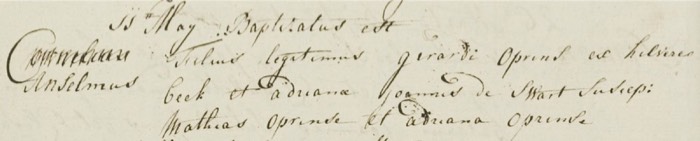 11 May Baptizatus est
Anselmus
Filius legitimus gerardi oprins ex hilvere
beek et adriana joannis de Swart Suscep:
Mathias oprense et adriana oprense